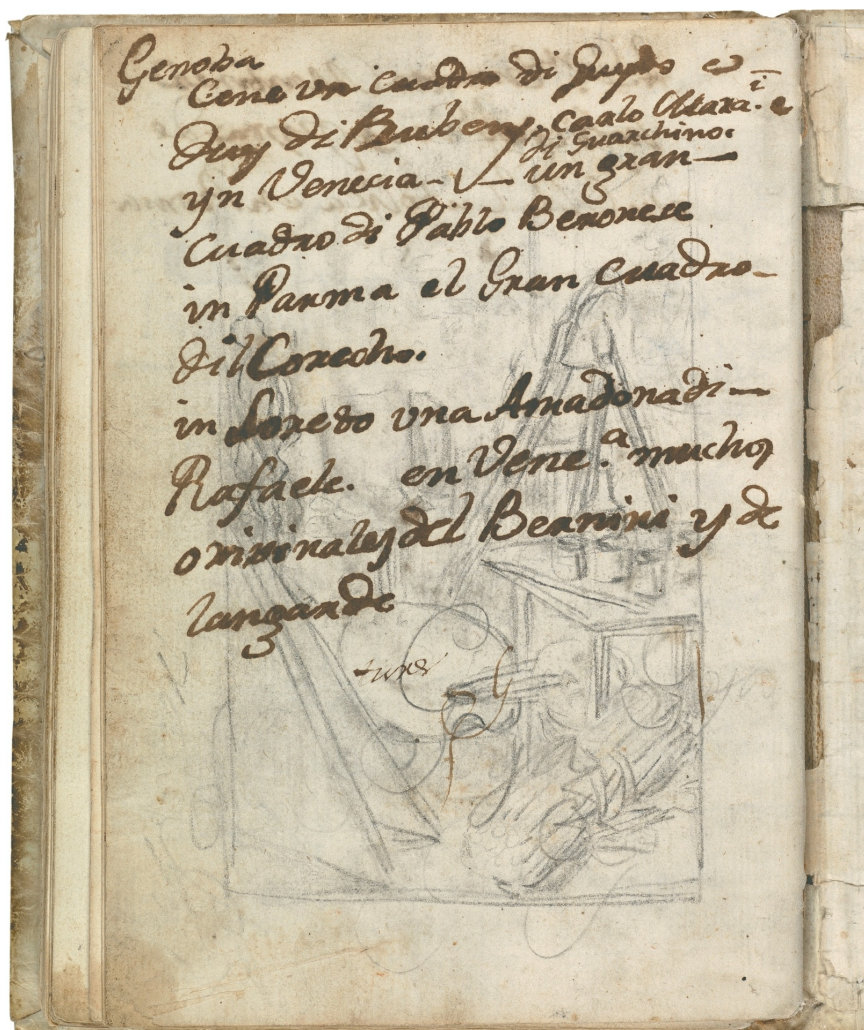 Genoba
Cene un cuadro di Guydo e
duy di Rubens, carlo
di Guarchino.
yn Venecia - un gran
cuadro di Pablo Beronese
in Parma el Gran cuadro
dil Corecho.
in Loreto una Amadona di
Rafaele. en Vene.ª muchos
orixinales del Bernini y de
langarde